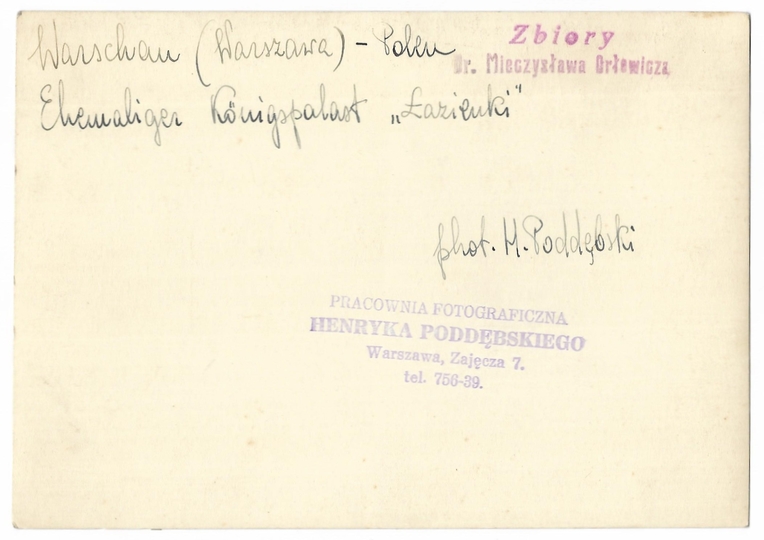 Warschau (Warszawa) – Polen
Zbiory
Dr. Mieczysława Orłowicza
Ehemaliger Königspalast „Łazienki"
phot. H. Poddębski
PRACOWNIA FOTOGRAFICZNA
HENRYKA PODDĘBSKIEGO
Warszawa, Zajęcza 7.
tel. 756-39.